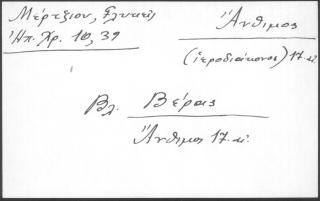 Μέρτζιου, Γλυκεῖς
Ἠπ. Χρ. 10, 39
Ἄνθιμος
(ἱεροδιάκονος) 17. αἰ.
Βλ. Βέρας
Ἄνθιμος 17. αἰ.